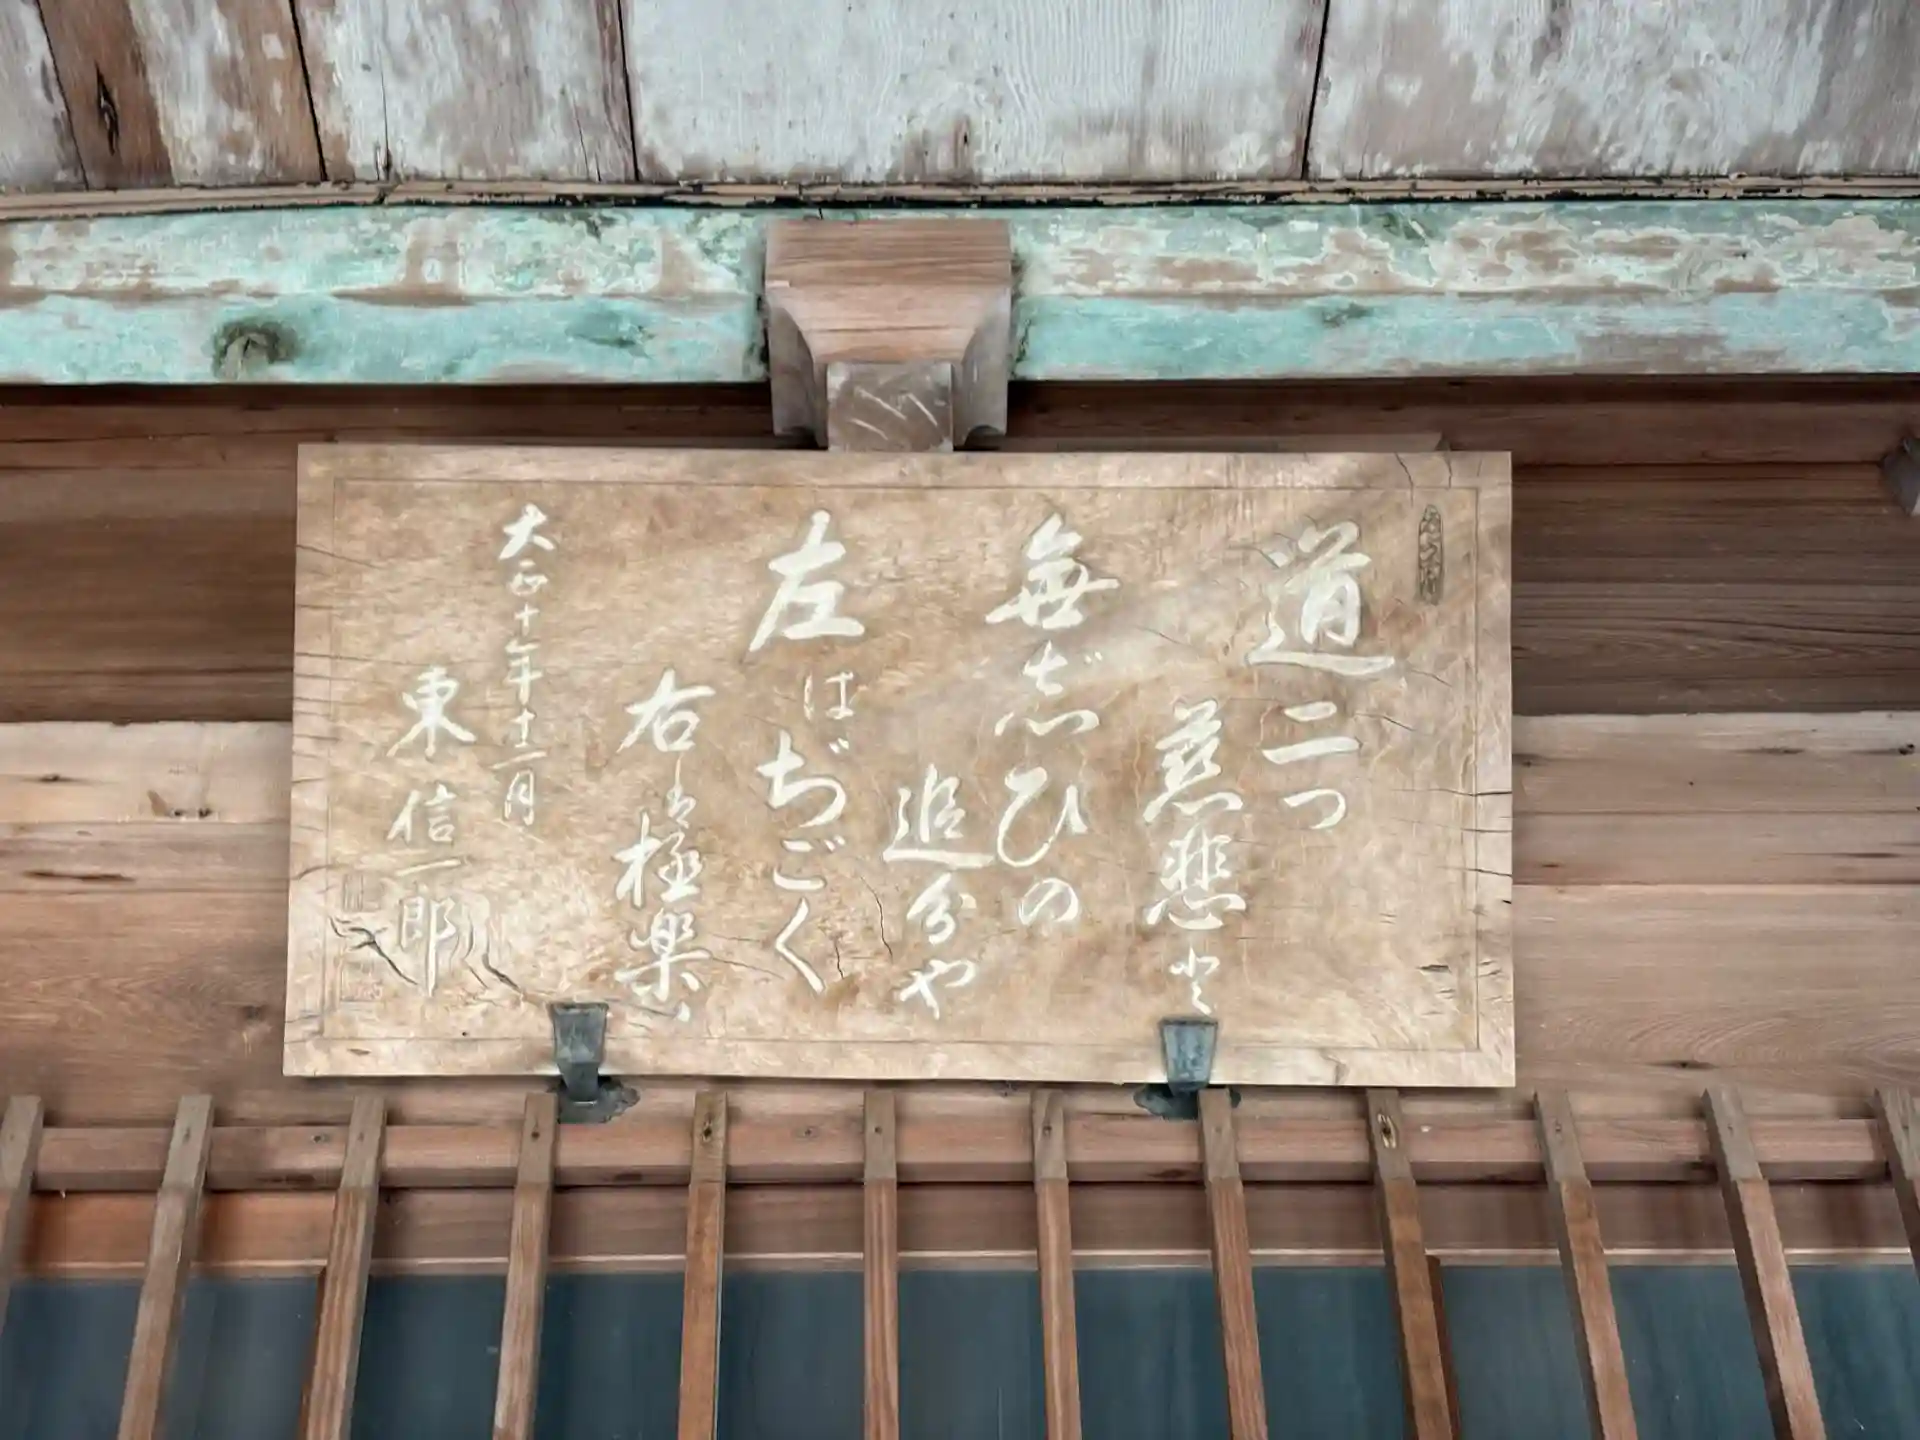 道二つ
慈悲と
無じひの
追分や
左はぢごく
右は極楽
大正十年十二月
東信一郎